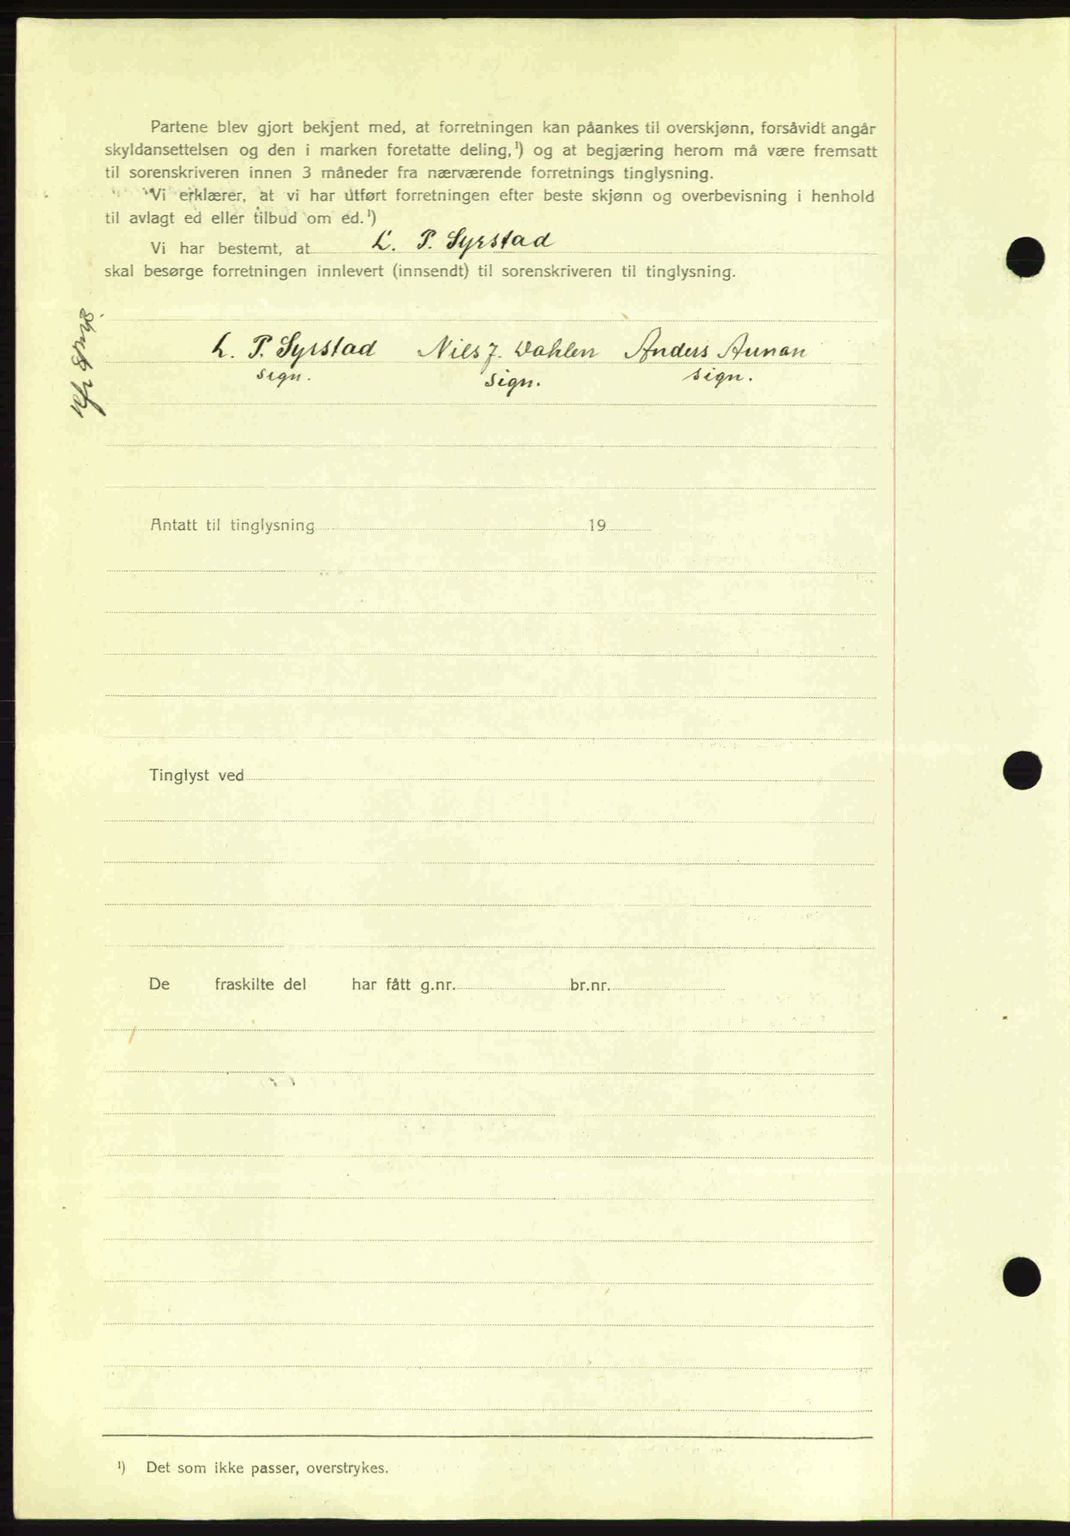 Partene blev gjort bekjent med, at forretningen kan påankes til overskjønn, forsåvidt angår
skyldansettelsen og den i marken foretatte deling,¹) og at begjæring herom må være fremsatt
til sorenskriveren innen 3 måneder fra nærværende forretnings tinglysning.
Vi erklærer, at vi har utført forretningen efter beste skjønn og overbevisning i henhold
til avlagt ed eller tilbud om ed.¹)
Vi har bestemt, at L. P. Syrstad
skal besørge forretningen innlevert (innsendt) til sorenskriveren til tinglysning.
L. P. Syrstad Nils J. Dahlen Anders Aunan
sign. sign. sign.
Antatt til tinglysning 19
Tinglyst ved
De fraskilte del har fått g.nr. br.nr.
¹) Det som ikke passer, overstrykes.